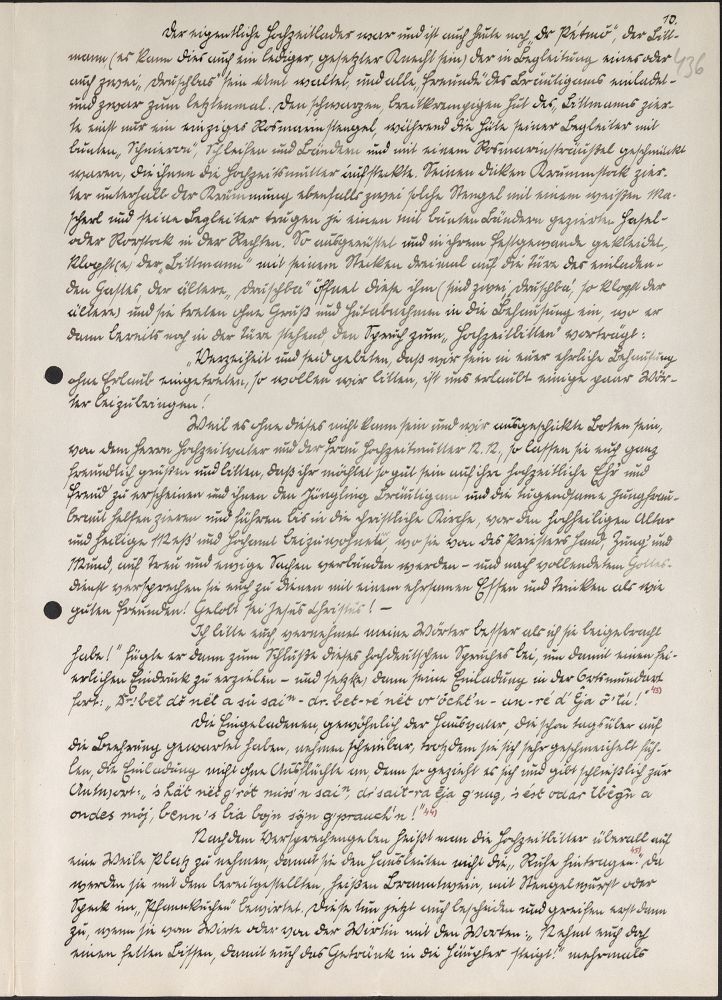 10.
436
Der eigentliche Hochzeitlader war und ist auch heute noch „Dr Petmô“, der Bitt-
mann (es kann dies auch ein lediger, gesetzter Knecht sein) der in Begleitung eines oder
auch zwei „Druschbas“ sein Amt waltet, und alle „Freunde“ des Bräutigams einladet -
und zwar zum letztenmal. Den schwarzen, breitkrempigen Hut des „Bittmanns zier-
te einst nur ein einziges Rosmareinstengel, während die Hüte seiner Begleiter mit
bunten Schleifen und Bändern und mit einem Rosmarinsträußel geschmückt
waren, die ihnen die Hochzeitsmutter aufsteckte. Seinen dicken Krummstock zier-
ten unterhalb der Krümmung ebenfalls zwei solche Stengel mit einem weißen Ma-
scherl und seine Begleiter trugen je einen mit bunten Bändern gezierten Hasel-
oder Rorstock in der Rechten. So ausgerüstet und in ihrem Festgewande gekleidet,
klopft(e) der „Bittmann“ mit seinem Stecken dreimal auf die Türe des einladen-
den Gastes der ältere „Druschba“ öffnet diese ihm (sind zwei Druschba, so klopft der
ältere) und sie treten ohne Gruß und Hutabnehmen in die Behausung ein, wo er
dann bereits noch in der Türe stehend den Spruch zum „Hochzeitbitten“ vorträgt:
„Verzeiheit und seid gebeten, daß wir sein in euer ehrliche Behausung
ohne Erlaub eingetreten, so wollen wir bitten, ist uns erlaubt einige paar Wör-
ter beizubringen!
Weil es ohne dieses nicht kann sein und wir ausgeschickte Boten sein,
von dem Herrn Hochzeitvater und der Frau Hochzeitmutter N. N., so lassen sie euch ganz
freundlich grüßen und bitten, daß ihr möchtet so gut sein auf ihre hochzeitliche Ehr und
Freud zu erscheinen und ihnen den Jüngling Bräutigam und die tugendsame Jungfrau-
braut helfen zieren und führen bis in die christliche Kirche, vor den hochheiligen Altar
und heilige Meß und beizuwohnen, wo sie von des Priesters Hand, Zung' und
Mund, auf Treu und ewige Sachen verbunden werden - und nach vollendetem Gottes-
dienst versprechen sie euch zu dienen mit einem ehrsamen Essen und Trinken als wie
guten Freunden! Gelobt sei Jesus Christus! -
Ich bitte euch, vernehmet meine Wörter besser als ich sie beigebracht
habe!“ fügte er dann zum Schluße dieses hochdeutschen Spruches bei, um damit einen fei-
erlichen Eindruck zu erzielen - und setzt(e) dann seine Einladung in der Ortsmundart
fort:
Die Eingeladenen, gewöhnlich der Hausvater, die schon tagsüber auf
die Beehrung gewartet haben, nehmen scheinbar, trotzdem sie sich sehr geschmeichelt füh-
len, die Einladung nicht ohne Ausflüchte an, denn so geziehmt es sich und gibt schließlich zur
Antwort:
Nach dem Versprechengeben heißt man die Hochzeitbitter überall auf
eine Weile Platz zu nehmen, damit sie den Hausleuten nicht die „Ruhe hintragen“, da
werden sie mit dem bereitgestellten, heißen Branntwein, mit Stengelwurst oder
Speck im „Pfannkuchen“ bewirtet. Diese tun jetzt auch bescheiden und greifen erst dann
zu, wenn sie vom Wirte oder von der Wirtin mit den Worten: „Nehmt euch doch
einen fetten Bissen, damit euch das Getränk in die Häupter steigt!“ mehrmals